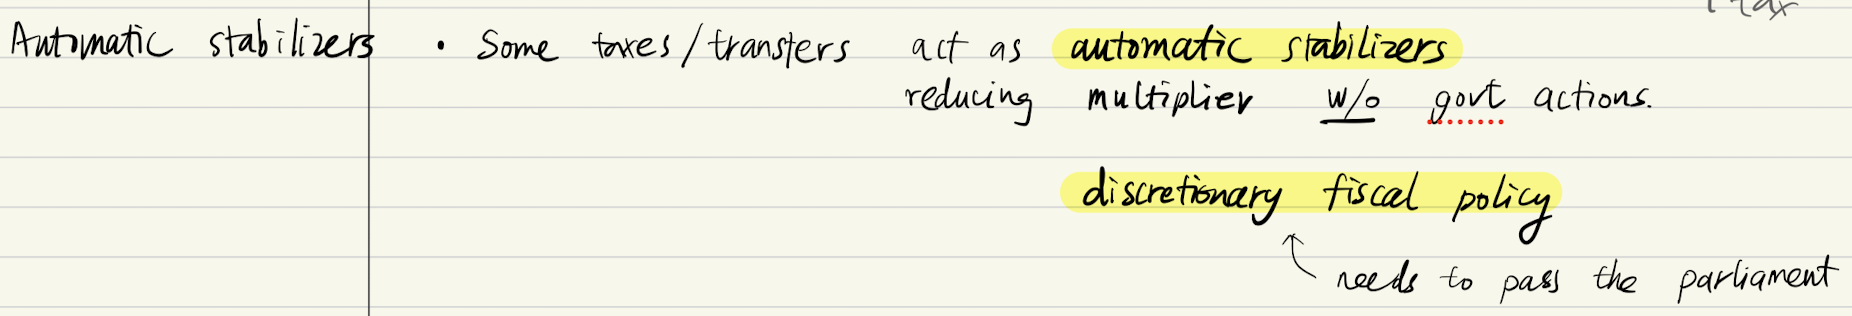 tax
Automatic stabilizers • Some taxes/transfers act as automatic stabilizers
reducing multiplier w/o govt actions.
discretionary fiscal policy
needs to pass the parliament